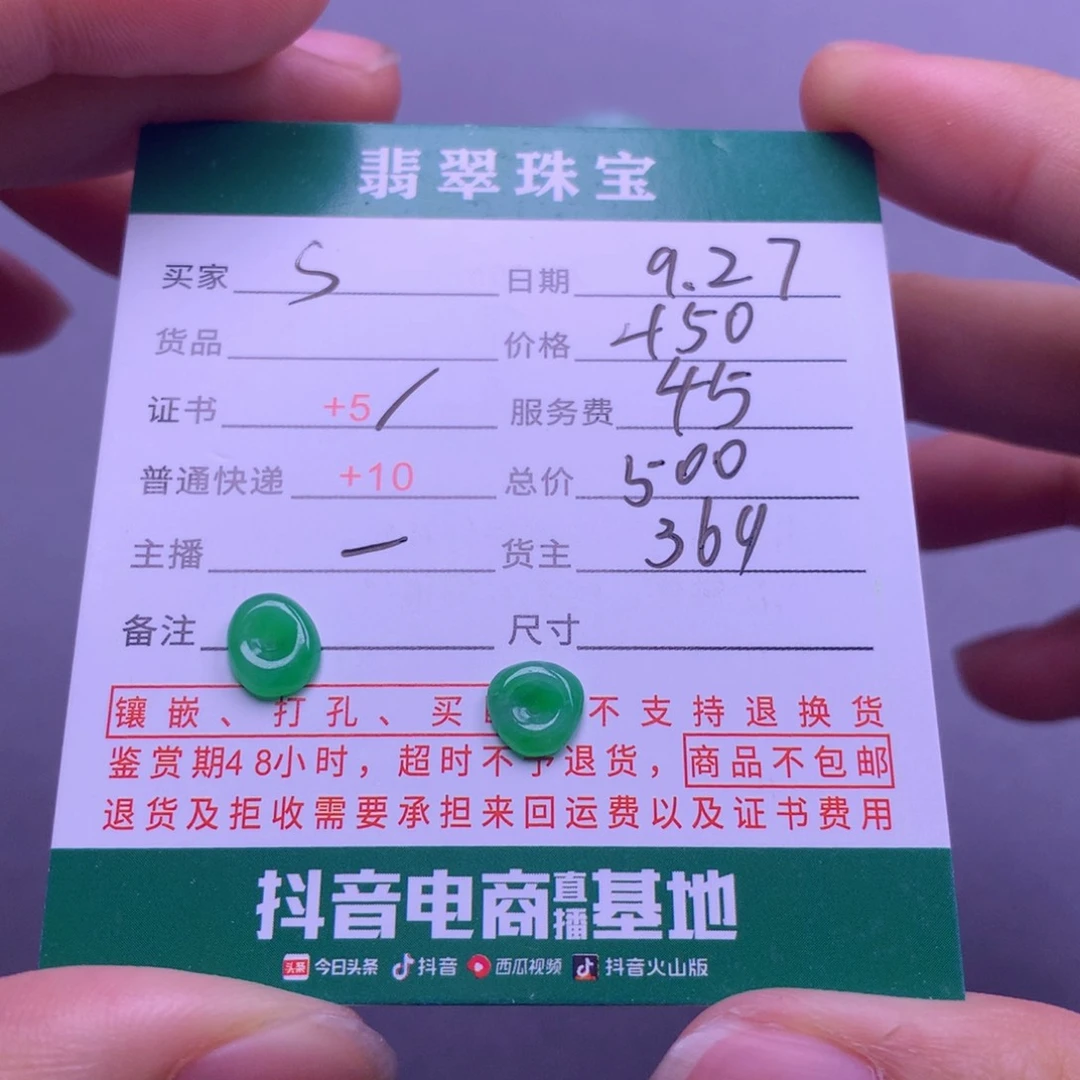 翡翠珠宝
买家 S 日期 9.27
货品 价格 450
证书 +5 / 服务费 45
普通快递 +10 总价 500
主播 一 货主 369
备注 尺寸
镶嵌、打孔、买 不支持退换货
鉴赏期48小时，超时不予退货，商品不包邮
退货及拒收需要承担来回运费以及证书费用
抖音电商直播基地
头条 今日头条 抖音 西瓜视频 抖音火山版